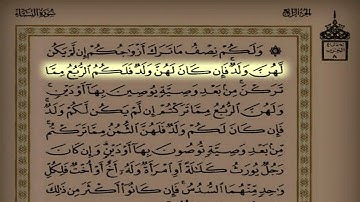 سورة النساء
الجزء الرابع
ولكم نصف ما ترك أزواجكم إن لم يكن
لهن ولد فإن كان لهن ولد فلكم الربع مما
تركن من بعد وصية يوصين بها أو دين
ولهن الربع مما تركتم إن لم يكن لكم ولد
فإن كان لكم ولد فلهن الثمن مما تركتم
من بعد وصية توصون بها أو دين وإن كان
رجل يورث كلالة أو امرأة وله أخ أو أخت فلكل
واحد منهما السدس فإن كانوا أكثر من ذلك